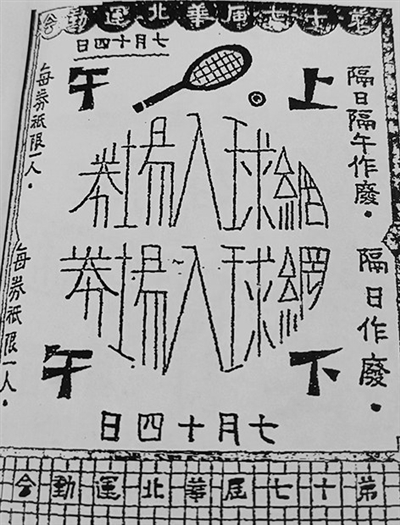 第十七屆華北運動会
七月十四日
上午
隔日隔午作廢。
網球入場券
每券祇限一人。
網球入場券
隔日作廢。
每券祇限一人。
下午
七月十四日
第十七屆華北運動会